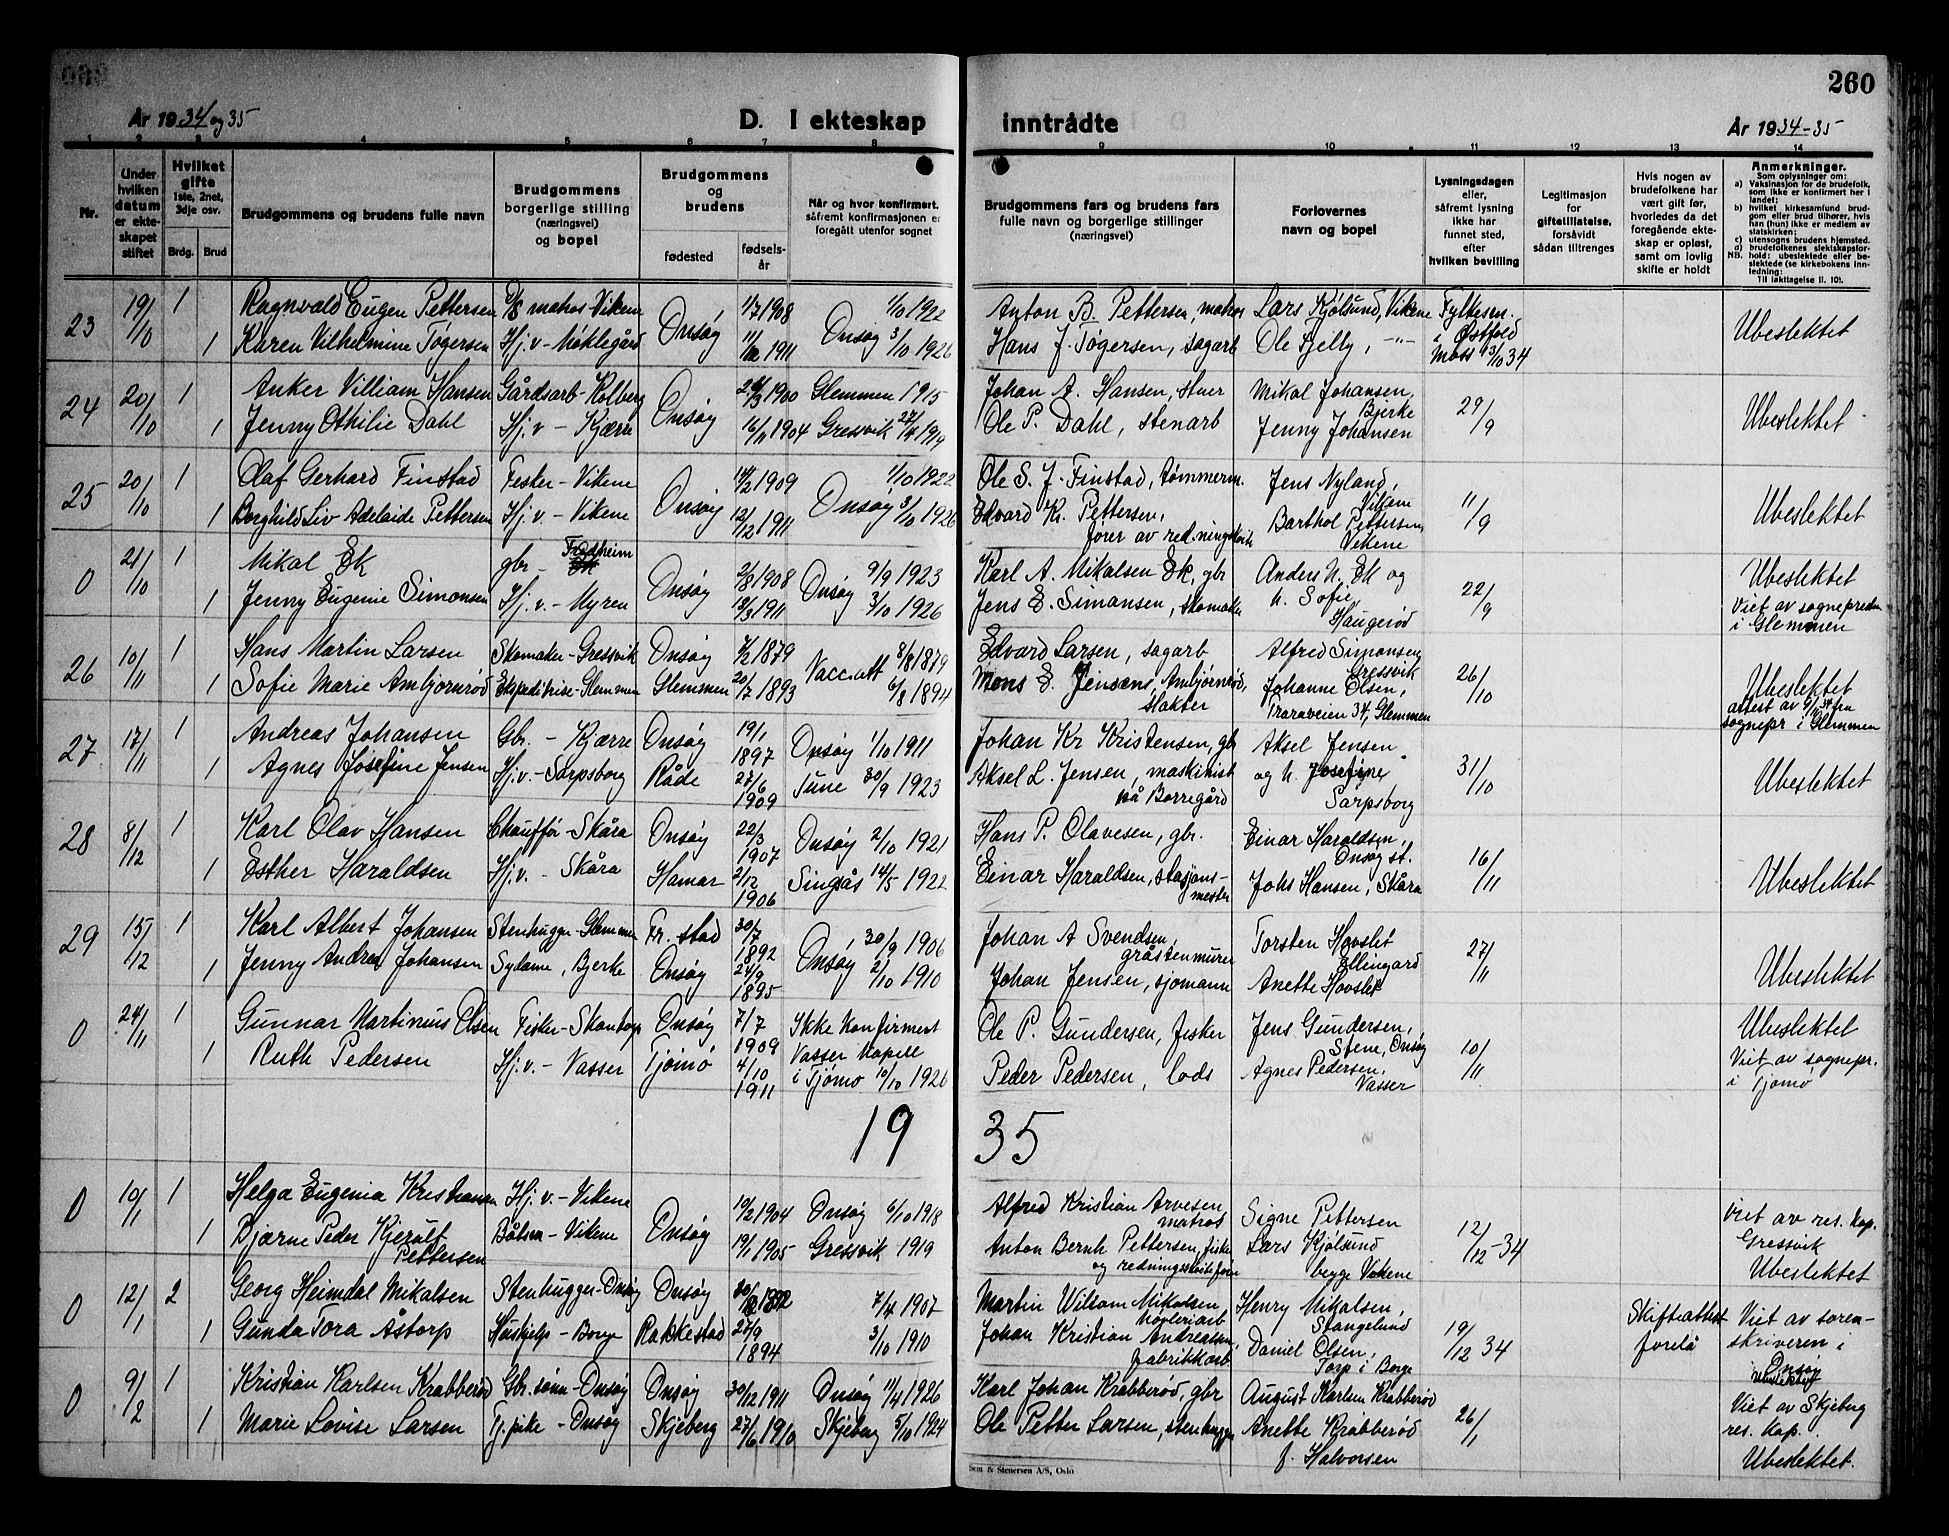 260
År 1934 og 35
D. I ekteskap
inntrådte
År 1934-35
1 2 3 4 5 6 7 8 9 10 11 12 13 14
Nr.
Under hvilken datum er ekteskapet stiftet
Hvilket gifte 1ste, 2net, 3dje osv.
Brdg. Brud
Brudgommens og brudens fulle navn
Brudgommens borgerlige stilling (næringsvei) og bopel
Brudgommens og brudens
fødested
fødselsår
Når og hvor konfirmert, såfremt konfirmasjonen er foregått utenfor sognet
Brudgommens fars og brudens fars fulle navn og borgerlige stillinger (næringsvei)
Forlovernes navn og bopel
Lysningsdagen eller, såfremt lysning ikke har funnet sted, efter hvilken bevilling
Legitimasjon for giftetillatelse, forsåvidt sådan tiltrenges
Hvis nogen av brudefolkene har vært gift før, hvorledes da det foregående ekteskap er opløst, samt om lovlig skifte er holdt
Anmerkninger.
Som oplysninger om:
a) Vaksinasjon for de brudefolk, som ikke er konfirmert her i landet;
b) hvilket kirkesamfund brudgom eller brud tilhører, hvis han (hun) ikke er medlem av statskirken;
c) utensogns brudens hjemsted.
d) brudefolkenes slektskapsforhold: ubeslektede eller beslektede (se kirkebokens innledning:
NB. Til iakttagelse II. 10).
23 19/10 1 Ragnvald Eugen Pettersen matros Vikene Onsøy 1/7 1908 Onsøy 1/10 1922 Anton B. Pettersen, matros Lars Kjølsund, Vikene Fylkesm. i Østfold Moss 13/10 34 Ubeslektet
1 Karen Vilhelmine Tøgersen Hj.v - Møklegård 1911 3/10 1926 Hans J. Tøgersen, sagarb Ole Fjelly, -"-
24 20/10 1 Anker Villiam Hansen Gårdsarb - Kolberg Onsøy 1900 Glemmen 1915 Johan A. Hansen, stuer Mikal Johansen, Bjerke 29/9 Ubeslektet
1 Jenny Othilie Dahl Hj.v - Kjærre 16/11 1904 Gressvik 27/4 1919 Ole P. Dahl, stenarb Jenny Johansen
25 20/10 1 Olaf Gerhard Finstad Fisker - Vikene Onsøy 14/2 1909 Onsøy 1/10 1922 Ole S. J. Finstad, tømmerm. Jens Nyland, Vikene 11/9 Ubeslektet
1 Borghild Liv Adelaide Pettersen Hj.v - Vikene 12/12 1911 3/10 1926 Edvard Kr. Pettersen, fører av redningsskøite Barthol Pettersen, Vikene
0 21/10 1 Mikal Ek gbr - Fredheim Onsøy 2/8 1908 Onsøy 9/9 1923 Karl A. Mikalsen Ek, gbr Anders N. Ek og 22/9 Ubeslektet
1 Jenny Eugenie Simonsen Hj.v. - Myren 18/3 1911 3/10 1926 Jens E. Simansen, skomaker h. Sofie, Haugerød Viet av sognepresten i Glemmen
26 10/11 1 Hans Martin Larsen Skomaker - Gressvik Onsøy 1/2 1879 Vacc.att 8/8 1879 Edvard Larsen, sagarb Alfred Simonsen, Gressvik 26/10 Ubeslektet
1 Sofie Marie Ambjørnrød Ekspeditrise - Glemmen Glemmen 20/7 1893 6/8 1894 Mons E. Jensens, Ambjørnrød, slakter Johanne Olsen, Traraveien 34, Glemmen attest av 9/11 34 fra sognepr i Glemmen
27 17/11 1 Andreas Johansen Gbr. - Kjærre Onsøy 19/1 1897 Onsøy 1/10 1911 Johan Kr Kristensen, gbr Aksel Jensen 31/10 Ubeslektet
1 Agnes Josefine Jensen Hj.v. - Sarpsborg Råde 27/6 1909 Tune 30/9 1923 Aksel L. Jensen, maskinist på Borregård og h. Josefine Sarpsborg
28 8/12 1 Karl Olav Hansen Chauffør - Skåra Onsøy 22/3 1907 Onsøy 2/10 1921 Hans P. Olavesen, gbr. Einar Haraldsen, Onsøy st. 16/11 Ubeslektet
1 Esther Haraldsen Hj.v. - Skåra Hamar 2/12 1906 Singsås 14/5 1922 Einar Haraldsen, stasjonsmester Johs Hansen, Skåra
29 15/12 1 Karl Albert Johansen Stenhugger - Glemmen Fr.stad 30/7 1892 Onsøy 30/9 1906 Johan A Svendsen, gråstenmurer Torsten Hovslet Ellingard 27/11 Ubeslektet
1 Jenny Andrea Johansen Sydame, Bjerke Onsøy 24/9 1895 2/10 1910 Johan Jensen, sjomann Anette Hovslet
0 24/11 1 Gunnar Martinius Olsen Fisker - Onsøy 7/7 1909 Ikke konfirmert Ole P. Gundersen, fisker Jens Gundersen, Stene, Onsøy 10/11 Ubeslektet
1 Ruth Pedersen Hj.v. - Vasser Tjømø 4/10 1911 Vasser Kapell i Tjømø 10/10 1926 Peder Pedersen, lods Agnes Pedersen, Vasser Viet av sognepr. i Tjømø
1935
0 10/1 1 Helga Eugenia Kristiansen Hj.v. - Vikene Onsøy 19/2 1904 Onsøy 6/10 1918 Alfred Kristian Arvesen, matros Signe Pettersen 12/12-34 Viet av res. Kap. Gressvik
1 Bjarne Peder Kjerulf Pettersen Båtsm - Vikene 19/1 1905 Gressvik 1919 Anton Bernh Pettersen, fisker og redningsskøitefører Lars Kjølsund begge Vikene Ubeslektet
0 12/1 2 Georg Heimdal Mikalsen Stenhugger - Onsøy Onsøy 7/4 1907 Martin Wiliam Mikalsen høvleriarb Henry Mikalsen, Stangelund 19/12 34 Skifteattest forelå Viet av sorenskriveren i Onsøy
1 Gunda Tora Åstorp Hushjelp - Borge Rakkestad 27/9 1894 3/10 1910 Johan Kristian Andreassen fabrikkarb Daniel Olsen, Torp i Borge Ubeslektet
0 9/2 1 Kristian Karlsen Krabberød Gbr.sønn - Onsøy Onsøy 30/12 1911 Onsøy 11/4 1926 Karl Johan Krabberød, gbr August Karlsen Krabberød 26/1 Viet av Skjeberg res. Kap.
1 Marie Lovise Larsen Tj.pike - Onsøy Skjeberg 27/6 1910 Skjeberg 5/10 1924 Ole Petter Larsen, stenhugger Anette Krabberød f. Halvorsen Ubeslektet.
Sem & Stenersen A/S, Oslo